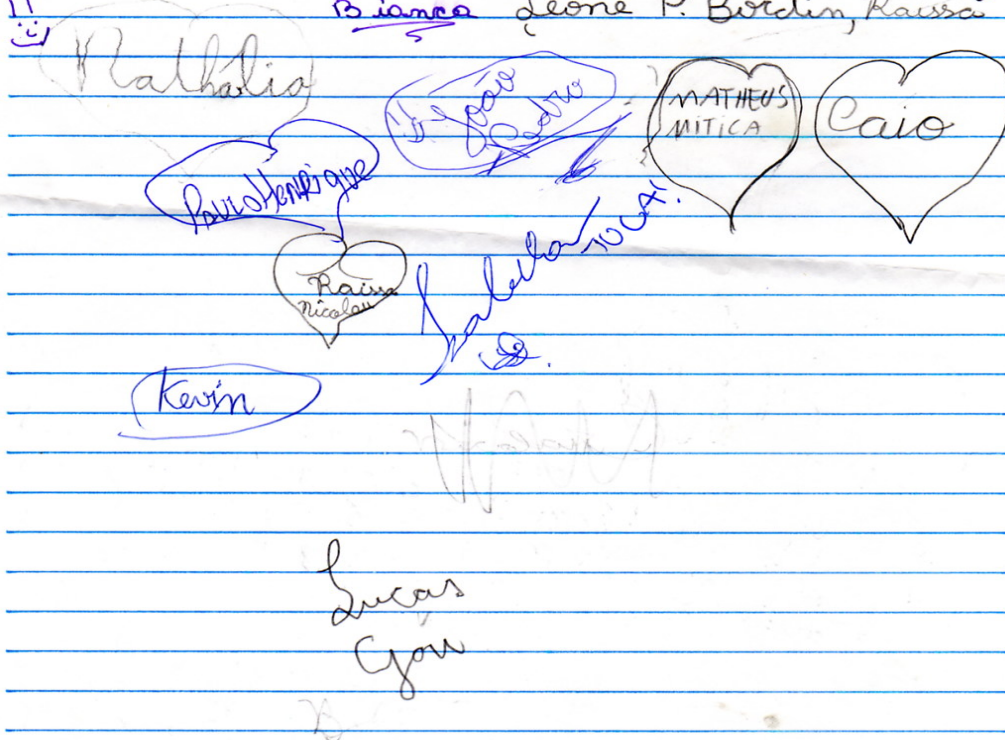 Bianca Leone P. Bordin, Raissa
Nathália
João
Pedro
MATHEUS
MITICA
Caio
Paulo Henrique
TOCA!
Raissa
Nicolau
Kevin
Lucas